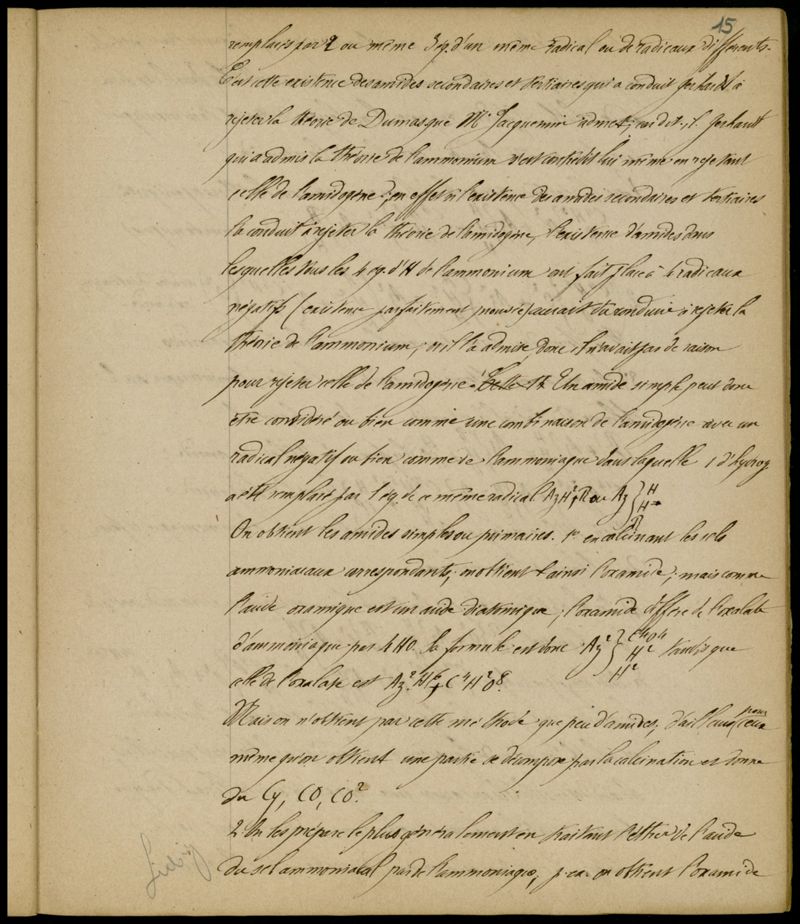 15
remplacés par 2 ou même 3 éq. d'un même radical ou de radicaux différents.
C'est cette existence des amides secondaires et tertiaires qui a conduit Gerhardt à
rejeter la théorie de Dumas que Mr Jacquemin admet; car dit-il, Gerhardt
qui a admis la théorie de l'ammonium s'est contredit lui même en rejetant
celle de l'amidogène; en effet si l'existence des amides secondaires et tertiaires
l'a conduit à rejeter la théorie de l'amidogène, l'existence d'amides dans
lesquelles tous les 4 eq. d'H de l'ammonium ont fait place à 4 radicaux
négatifs (existence parfaitement prouvée) aurait dû conduire à rejeter la
théorie de l'ammonium; or il l'a admise, donc il n'avait pas de raison
pour rejeter celle de l'amidogène. Un amide simple peut donc
être considéré ou bien comme une combinaison de l'amidogène avec un
radical négatif ou bien comme de l'ammoniaque dans laquelle 1 d'hydrog.
a été remplacé par 1 éq. de ce même radical AzH², R ou Az } H H R
On obtient les amides simples ou primaires. 1° en calcinant les sels
ammoniacaux correspondants; on obtient ainsi l'oxamide; mais comme
l'acide oxamique est un acide diatomique, l'oxamide diffère de l'oxalate
d'ammoniaque par 4HO. Sa formule est donc Az² } C⁴O⁴ H² H² tandis que
celle de l'oxalate est Az²H⁶, C⁴H²O⁸.
Mais on n'obtient par cette méthode que peu d'amides, d'ailleurs pour ceux
même qu'on obtient une partie se décompose par la calcination et donne
du Cy, CO, CO².
2 On les prépare le plus généralement en traitant l'éther de l'acide
du sel ammoniacal par de l'ammoniaque; p. ex. on obtient l'oxamide